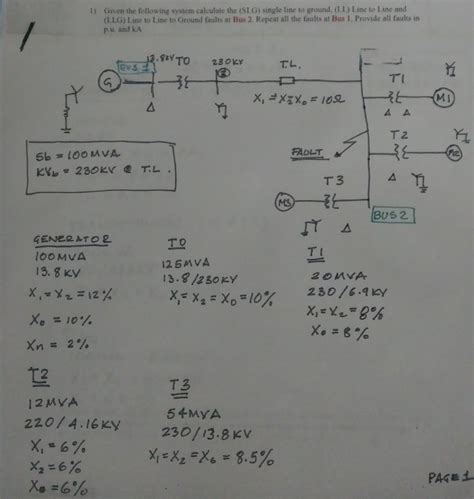 1) Given the following system calculate the (SLG) single line to ground, (LL) Line to Line and
(LLG) Line to Line to Ground faults at Bus 2. Repeat all the faults at Bus 1. Provide all faults in
p.u. and kA
BUS 1
13.8KV
TO
230KV
T.L.
X1 = X2 = X0 = 10Ω
G
T1
M1
T2
M2
FAULT
T3
M3
BUS 2
Sb = 100MVA
KVb = 230KV @ T.L.
GENERATOR
100MVA
13.8KV
X1 = X2 = 12%
X0 = 10%
Xn = 2%
TO
125MVA
13.8/230KV
X1 = X2 = X0 = 10%
T1
20MVA
230/6.9KV
X1 = X2 = 8%
X0 = 8%
T2
12MVA
220/4.16KV
X1 = 6%
X2 = 6%
X0 = 6%
T3
54MVA
230/13.8KV
X1 = X2 = X0 = 8.5%
PAGE 1